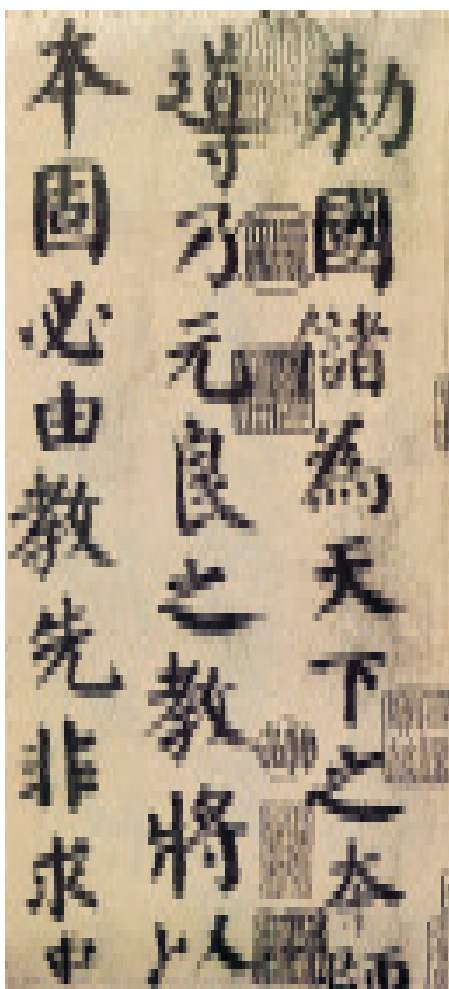 勑國儲為天下之本師
導乃元良之教將以
本固必由教先非求忠